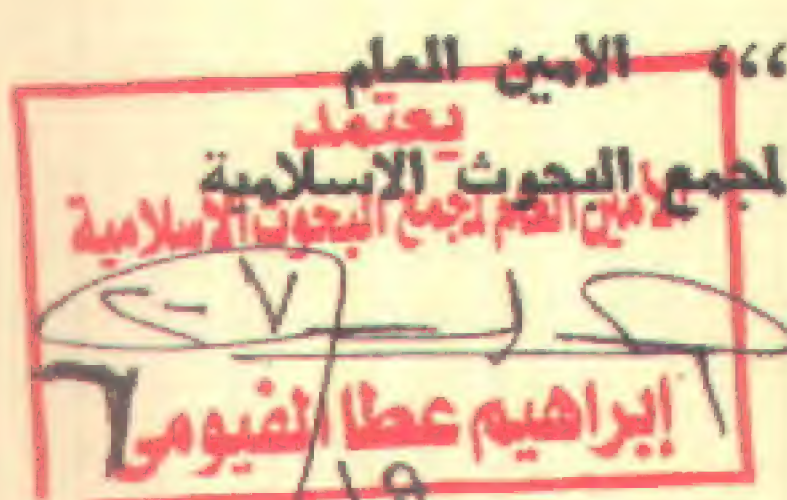 ،،، الامين العام
يعتمد
لمجمع البحوث الاسلامية
الأمين العام لمجمع البحوث الإسلامية
إبراهيم عطا الفيومى